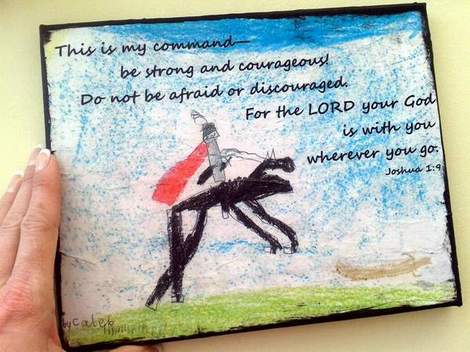 This is my command—
be strong and courageous!
Do not be afraid or discouraged.
For the LORD your God
is with you
wherever you go.
Joshua 1:9
by caleb